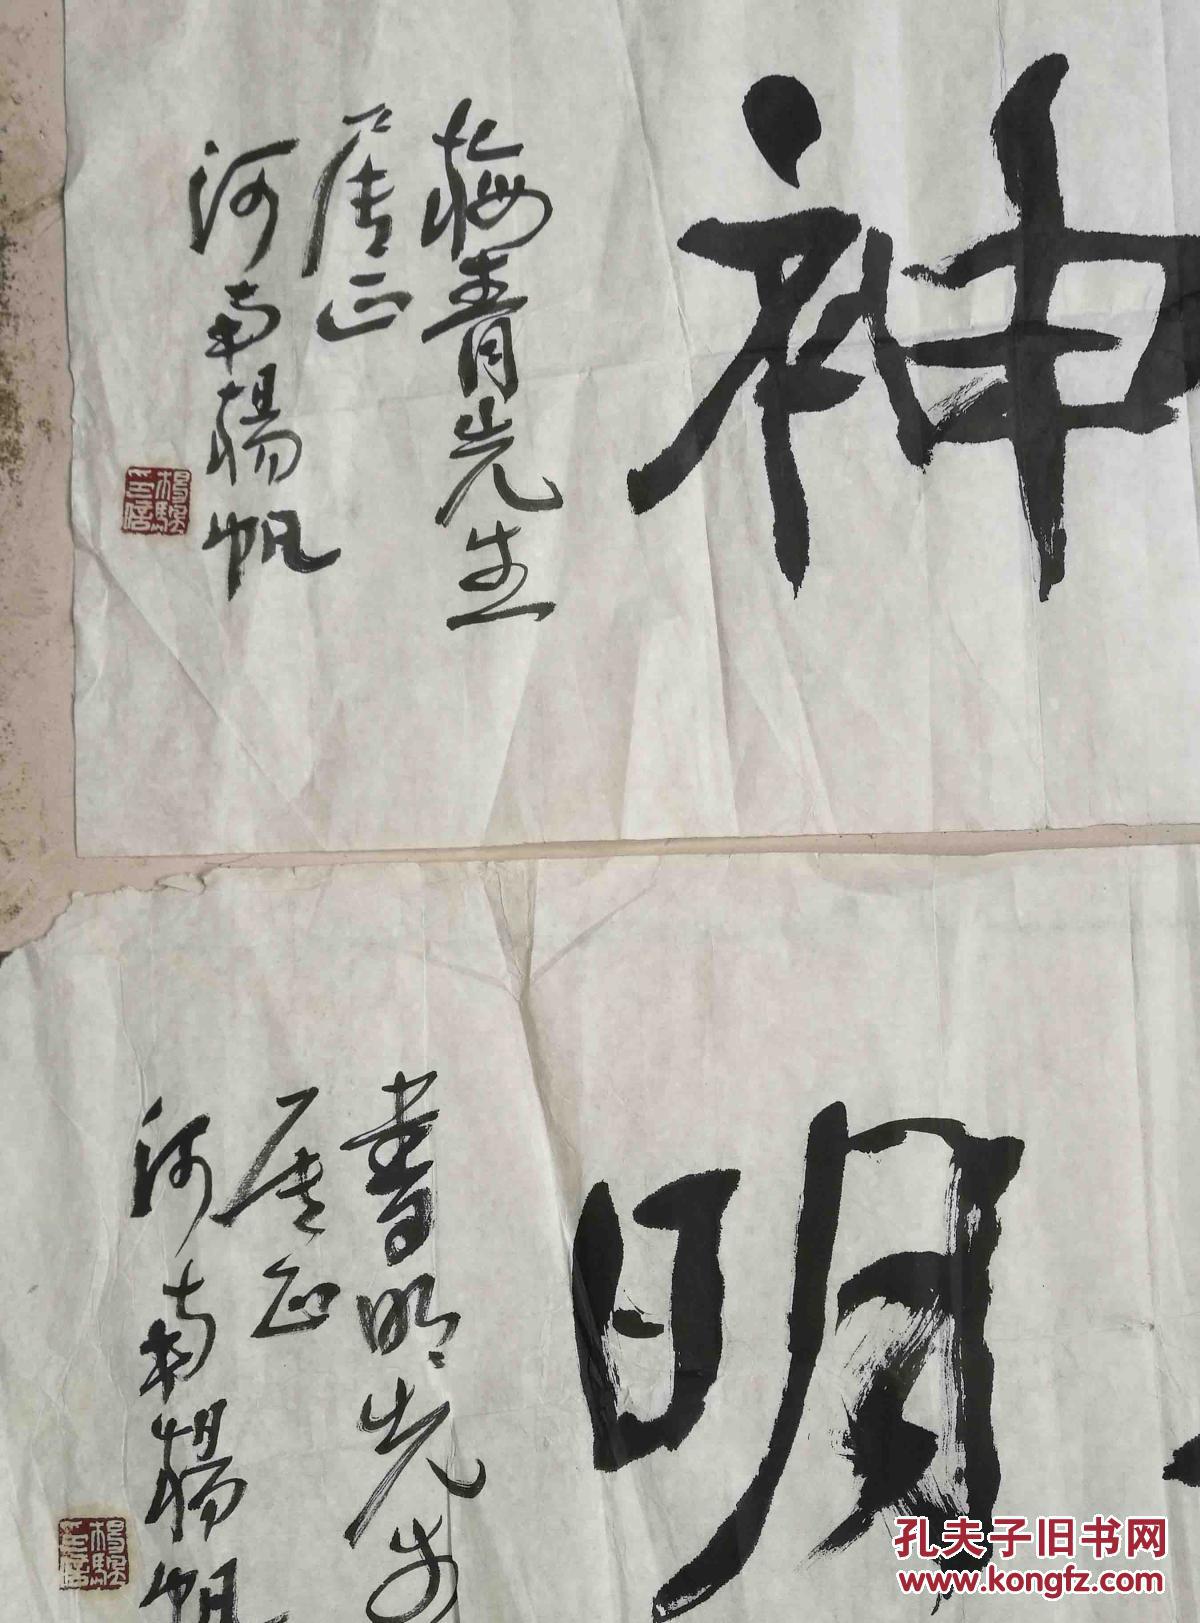 神
梅青先生
雅正
河南杨帆
明
书明先生
雅正
河南杨帆
孔夫子旧书网
www.kongfz.com